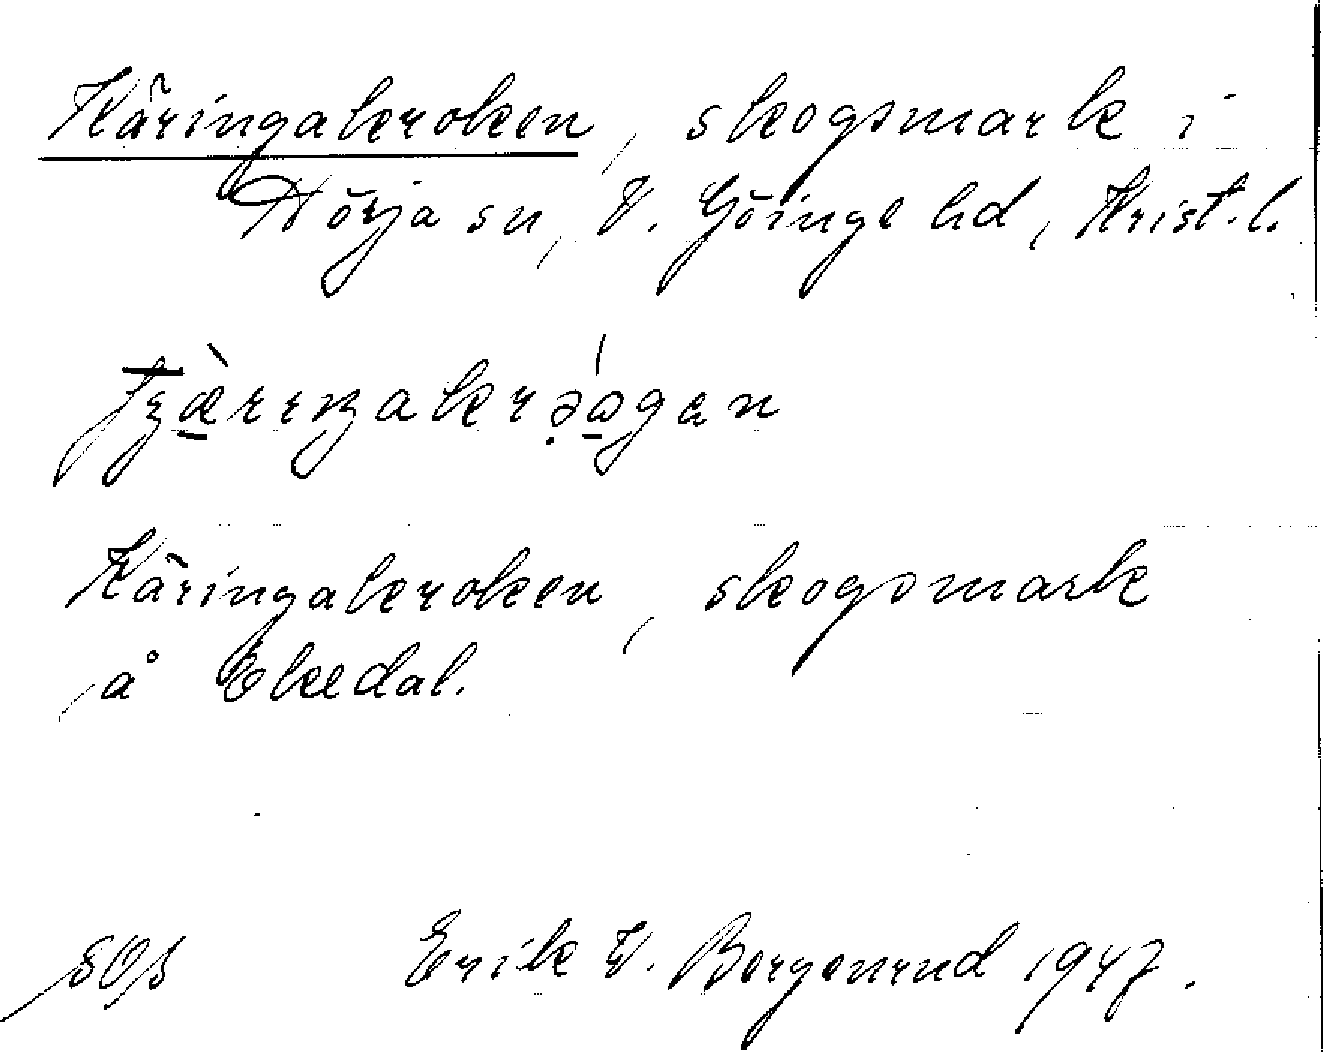 Käringakroken, skogsmark i
Hörja sn, V. Göinge hd, Krist. l.
Käringakroken, skogsmark
å Ekedal.
Erik V. Borgenrud 1947.